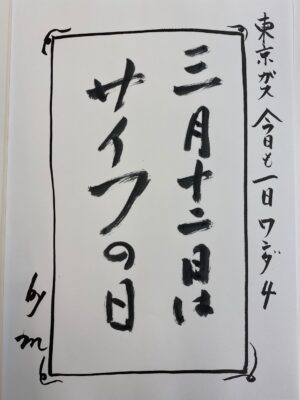 東京ガス 今日も一日 ワンダ 4
三月十二日は
サイフの日
by m